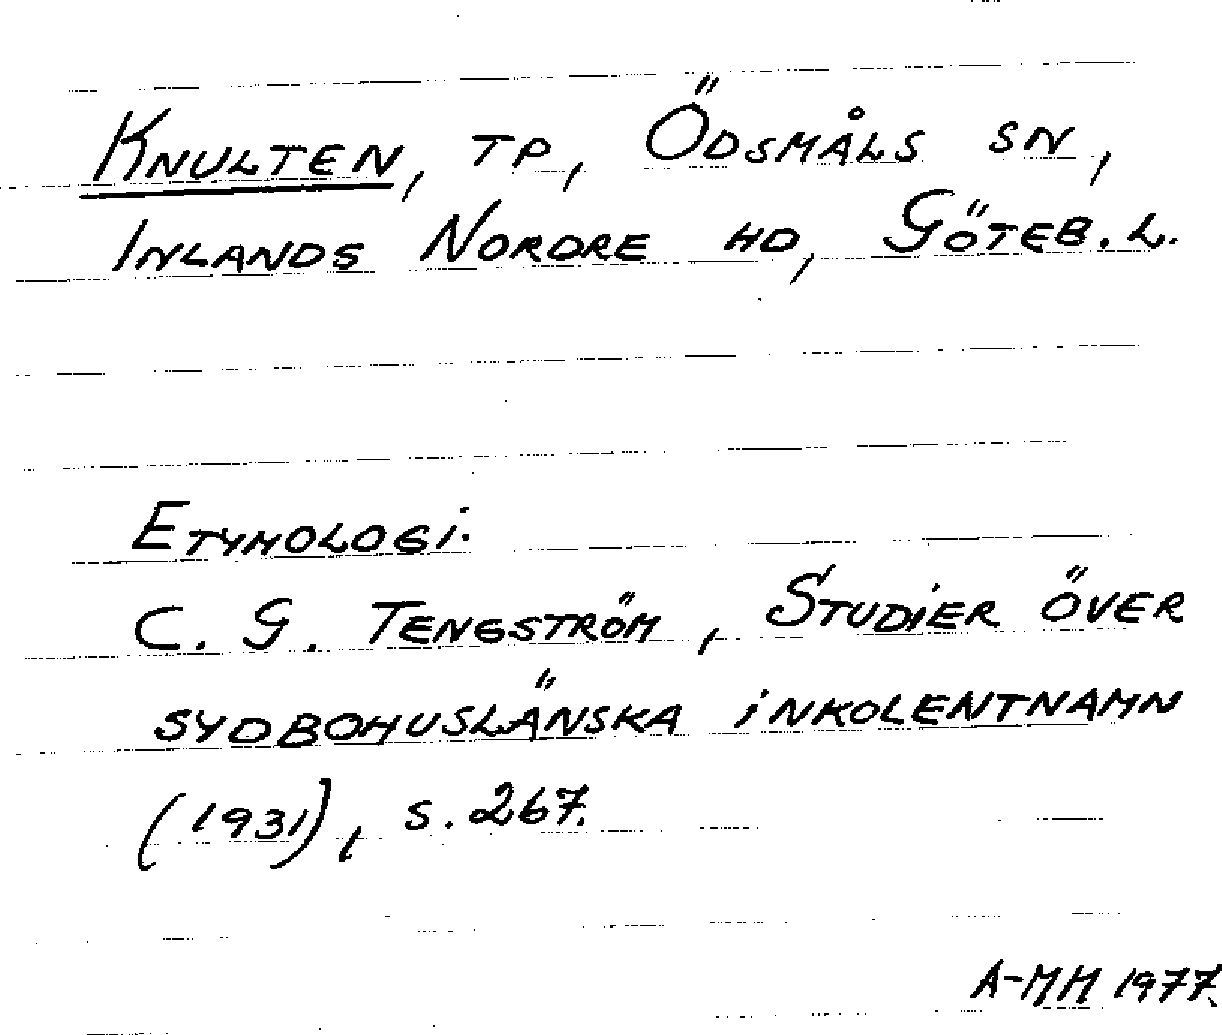 KNULTEN, TP, ÖDSMÅLS SN,
INLANDS NORDRE HD, GÖTEB. L.
ETYMOLOGI.
C. G. TENGSTRÖM, STUDIER ÖVER
SYDBOHUSLÄNSKA INKOLENTNAMN
(1931), S. 267.
A-MH 1977.